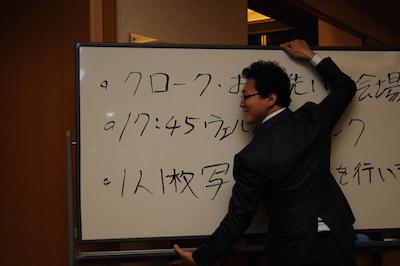 。クローク・お洗い会場
。17:45ウェルク
。1人1枚写を行い